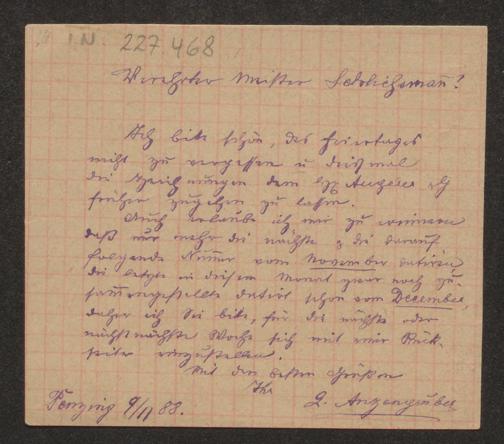 I.N. 227.468
Verehrter Meister
Ich bitte schön, des Feiertages
nicht zu vergessen u. dießmal
die Zeichnungen dem Hr
früher zugehen zu lassen.
Auch erlaube ich mir zu erinnern
daß nur mehr die nächste & die darauf
folgende Numer vom November datiren
die letzte in diesem Monat zwar noch zu-
sammengestellte datirt schon vom December,
daher ich Sie bitte, für die nächste oder
nächstnächste Woche sich mit einer Rück-
seite einzustellen.
Mit den besten Grüßen
Ihr
Penzing 9/11 88.
L. Anzengruber